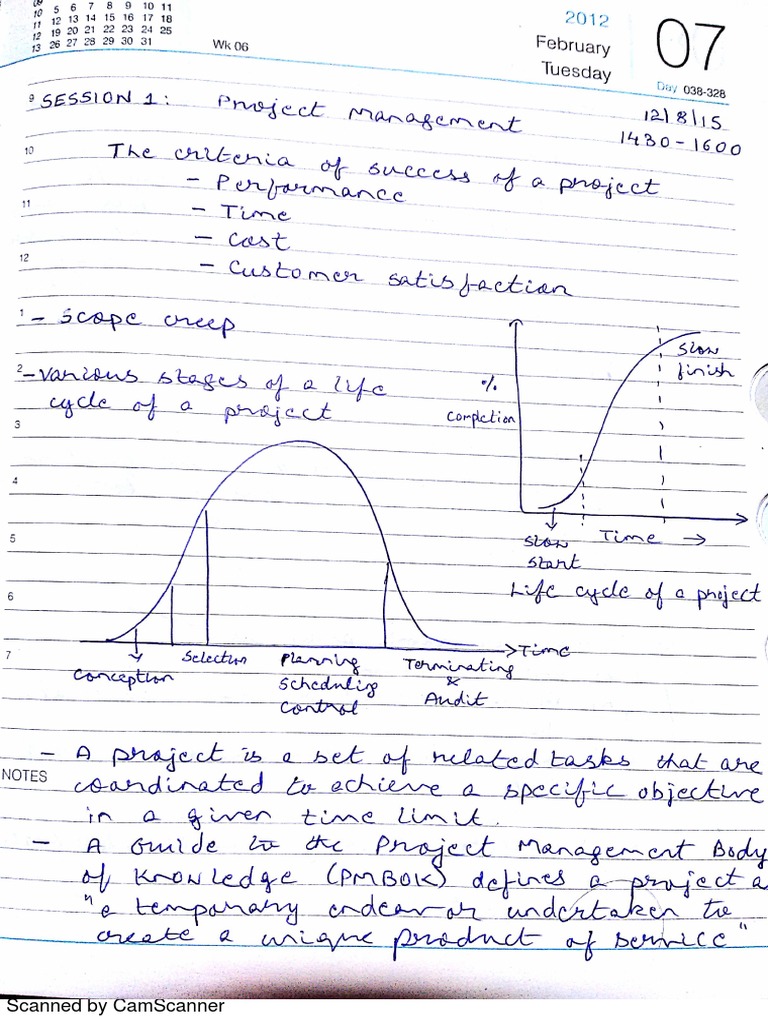 09
10 5 6 7 8 9 10 11
11 12 13 14 15 16 17 18
12 19 20 21 22 23 24 25
13 26 27 28 29 30 31
Wk 06
2012
February
Tuesday
07
Day 038-328
9 SESSION 1: Project Management
12/8/15
1430-1600
10 The criteria of success of a project
- Performance
11 - Time
- Cost
12 - Customer satisfaction
1 - Scope creep
2 - various stages of a life
cycle of a project
3
4
5
6
7
% completion
Slow
finish
Slow
start
Time →
Life cycle of a project
Time
Conception
Selection
Planning
Scheduling
Control
Terminating
&
Audit
- A project is a set of related tasks that are
NOTES coordinated to achieve a specific objective
in a given time limit.
- A Guide to the Project Management Body
of Knowledge (PMBOK) defines a project a
"a temporary endeavor undertaken to
create a unique product of service"
Scanned by CamScanner